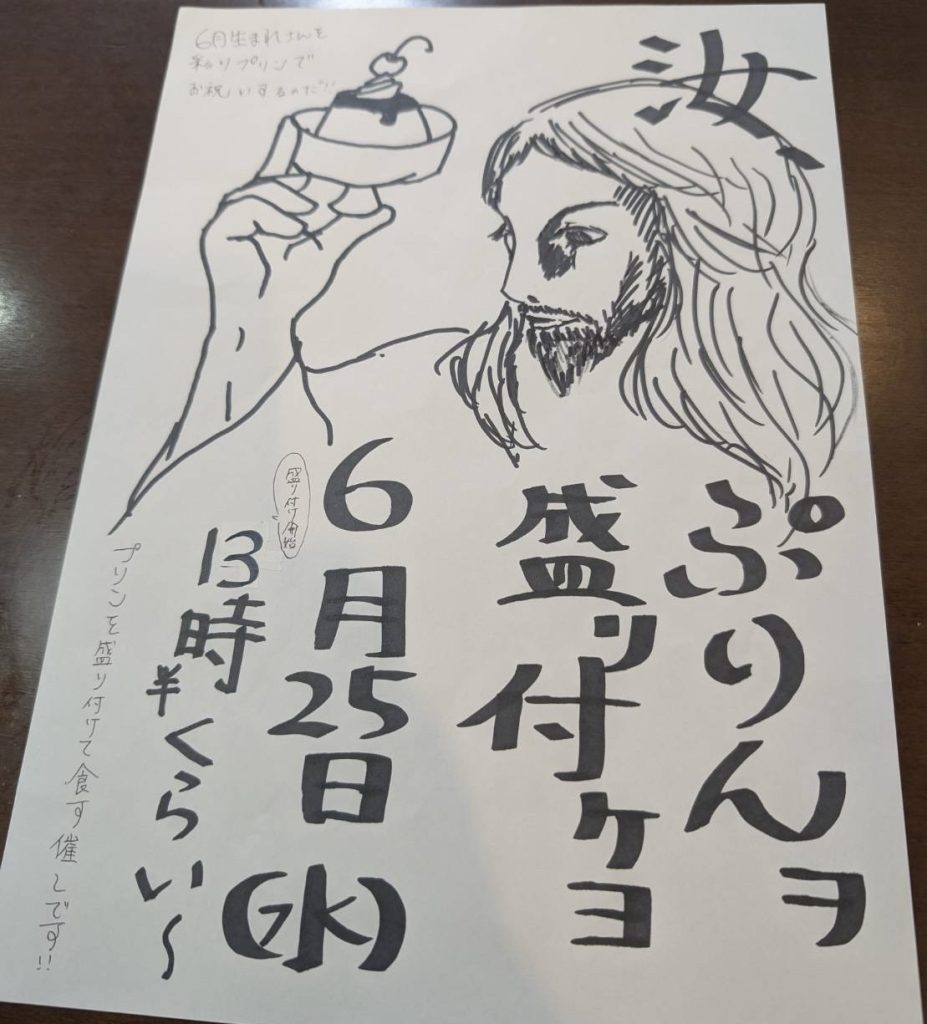 6月生まれさんを
プリンで
お祝いするのだ!!
汝、
ぷりんヲ
盛リ付ケヨ
6月25日(水)
盛り付け開始
13時半くらい〜
プリンを盛り付けて食す催しです!!